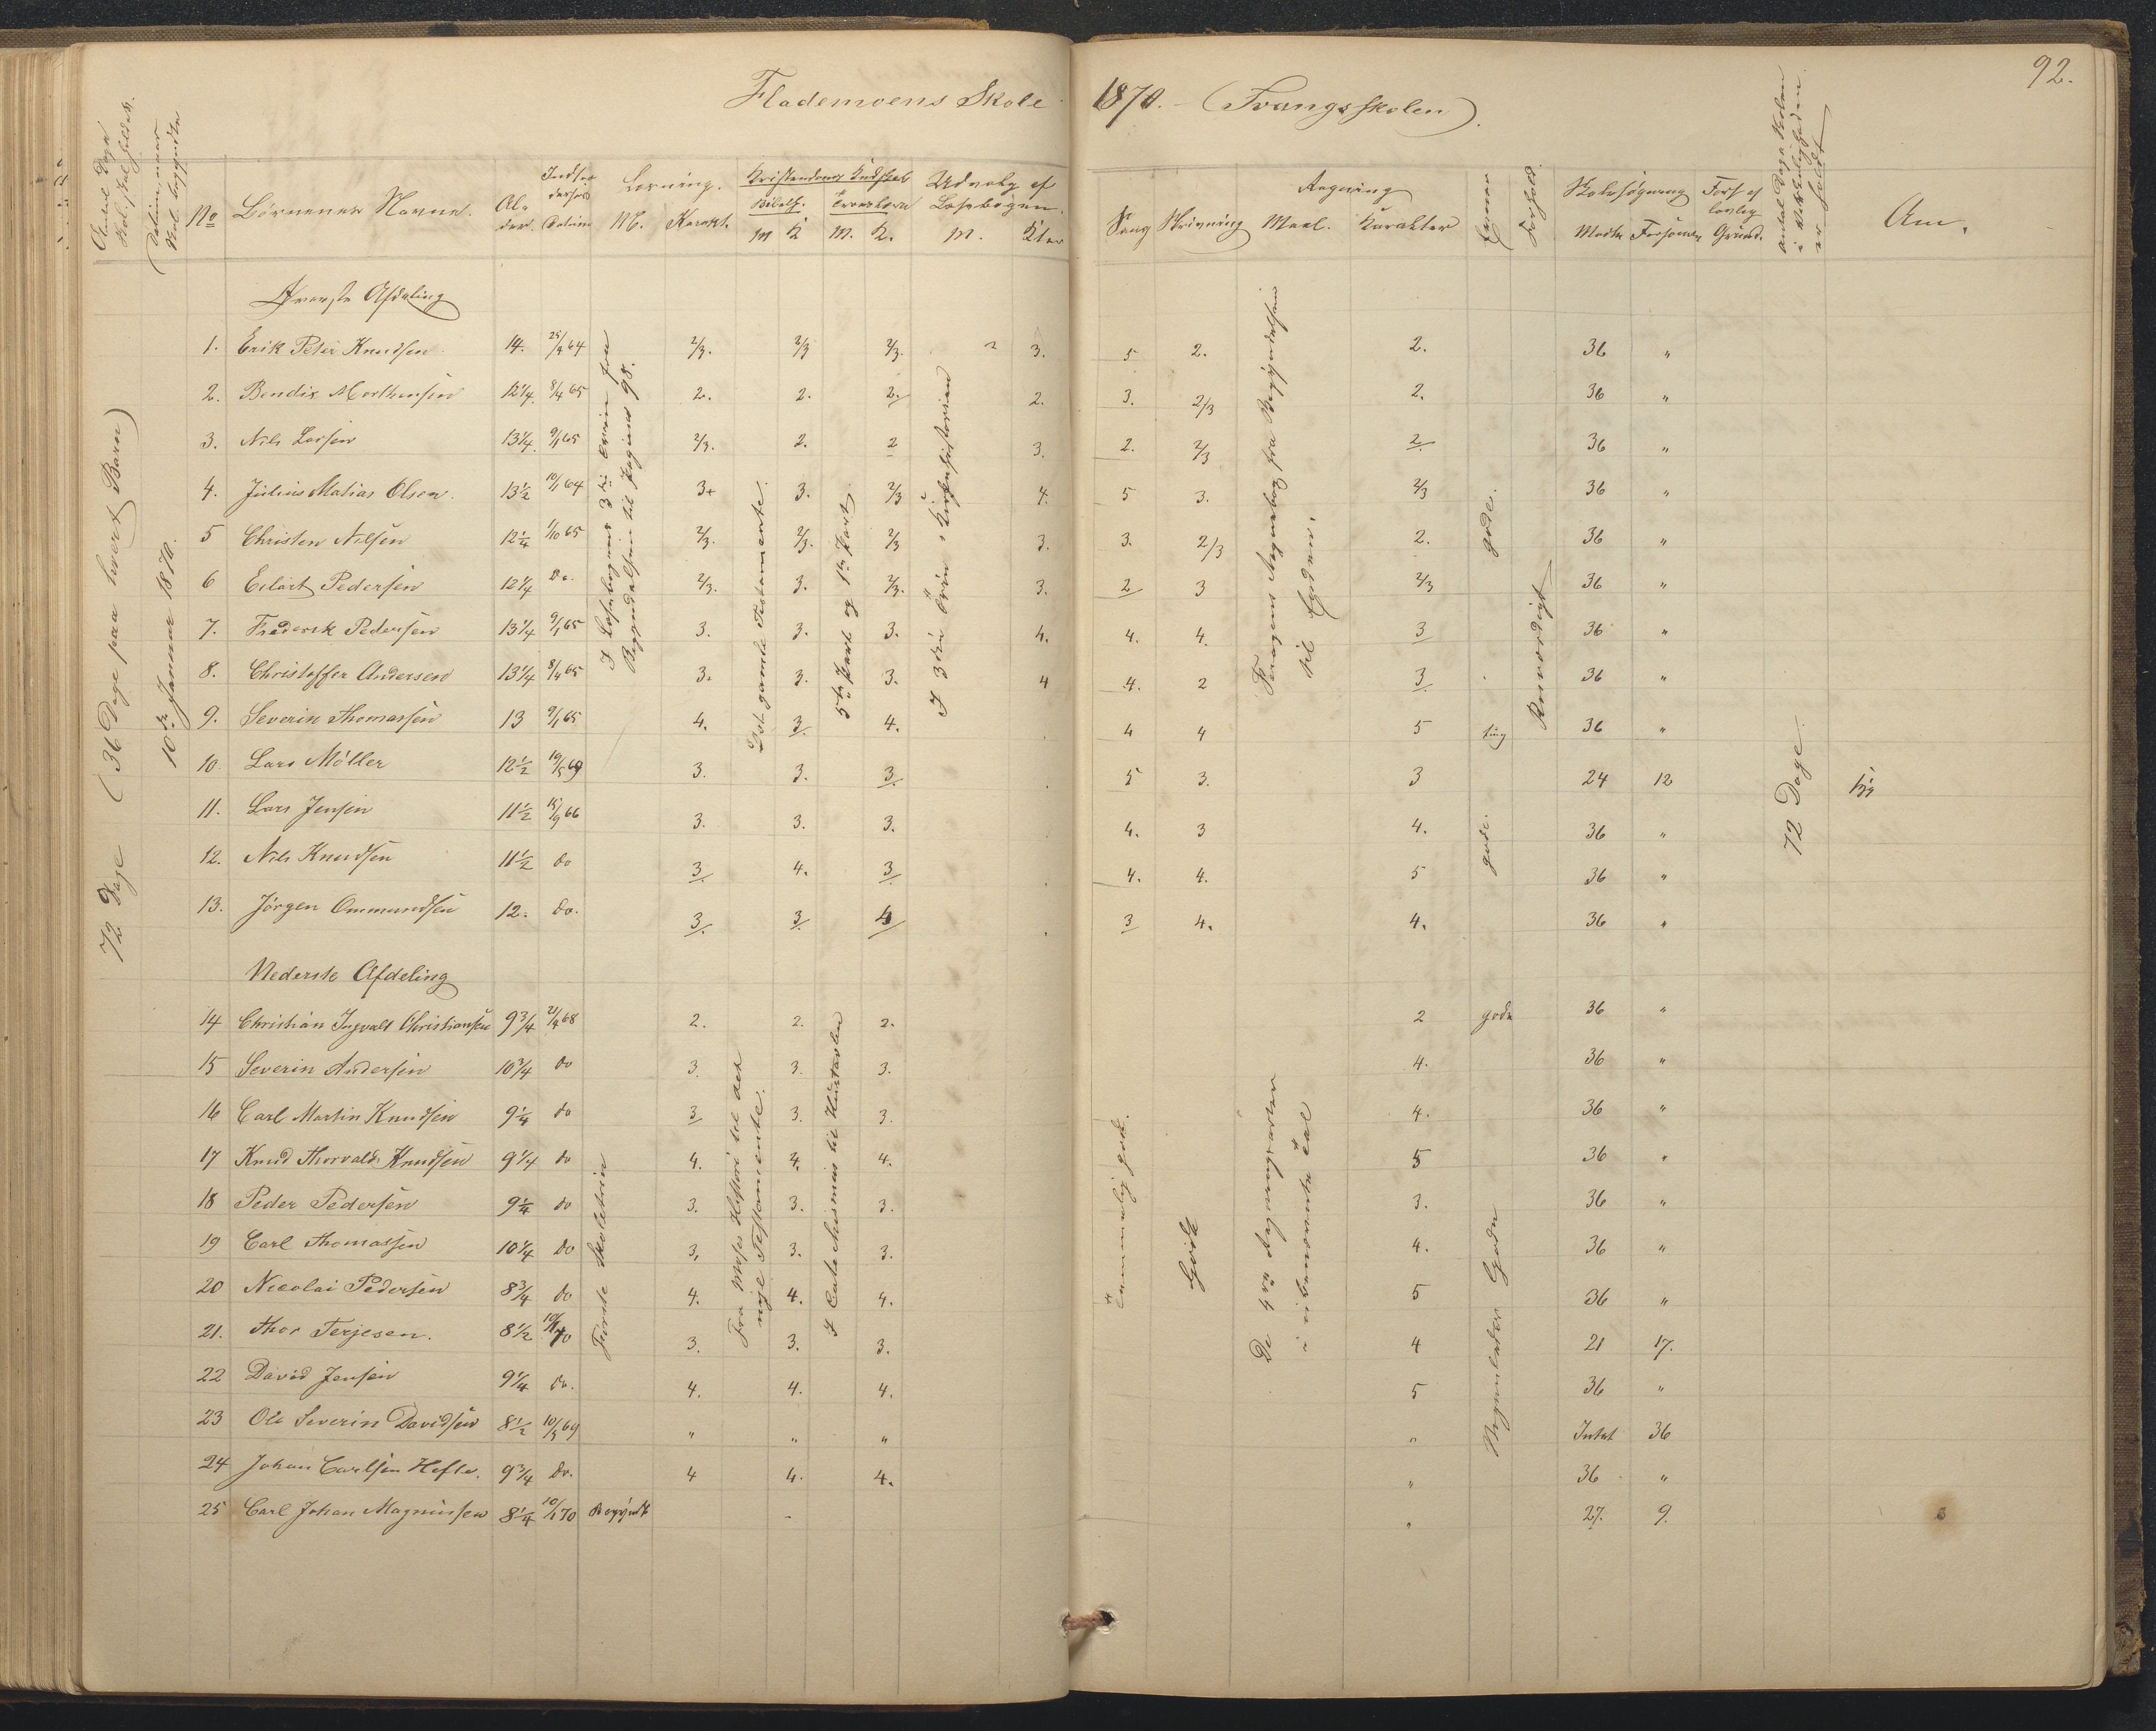 Flademoens Skole 1870. - (Tvangsskolen)
92.
Antal Dage Skol. skal holdes.
Datum, naar Skol. begyndte
No
Børnenes Navne.
Alder.
Indtrædelses Datum
Læsning.
M. Karakt.
Kristendoms Kundskab
Bibelh. M K
Troeslære M. K.
Udvalg af Læsebogen.
M. Kter
Sang
Skrivning
Regning
Maal. Karakter
Evner
Forhold.
Skolesøgning
Mødte Forsømte
Fors af lovlig Grund.
Antal Dage Skolen i Virkeligheden er holdt
Anm.
72 Dage (36 Dage paa hvert Barn)
10de Januar 1870.
Øverste Afdeling
1. Erik Peter Knudsen 14. 25/4 64 2/3. 2/3 2/3. 3. 5 2. 2. 36 "
2. Bendix Morthensen 12 1/4. 8/4 65 2. 2. 2. 2. 3. 2/3 2. 36 "
3. Nils Larsen 13 1/4. 9/1 65 2/3. 2. 2 3. 2. 2/3 2. 36 "
4. Julius Matias Olsen. 13 1/2 10/1 64 3+ 3. 2/3 4. 5 3. 2/3 36 "
5 Christen Nilsen 12 1/4 1/10 65 2/3. 2/3. 2/3 3. 3. 2/3 2. 36 "
6 Eilert Pedersen 12 1/4 Do. 2/3. 3. 2/3. 3. 2 3 2/3 36 "
7. Frederik Pedersen 13 1/4 9/1 65 3. 3. 3. 4. 4. 4. 3 36 "
8. Christoffer Andersen 13 1/4 8/4 65 3. 3. 3. 4 4. 2 3. 36 "
9. Severin Thomassen 13 9/1 65 4. 3. 4. 4 4 5 36 "
10. Lars Møller 12 1/2 10/5 69 3. 3. 3. 5 3. 3 24 12
11. Lars Jensen 11 1/2 15/9 66 3. 3. 3. 4. 3 4. 36 "
12. Nils Knudsen 11 1/2 do 3. 4. 3. 4. 4. 5 36 "
13. Jørgen Ommundsen 12. do. 3. 3. 4 3 4. 4. 36 "
I Læsebogens 3die Trin fra Begyndelsen til Pagina 98.
Det gamle Testamente.
5te Part og 1ste Part
I 3die Trin, Kirkehistorien
Fra Regnebog fra Begyndelsen til Enden.
gode.
Rosværdigt
gode.
72 Dage.
Nederste Afdeling
14 Christian Ingvald Christiansen 9 3/4 21/4 68 2. 2. 2. 2 gode 36 "
15 Severin Andersen 10 3/4 do 3. 3. 3. 4. 36 "
16 Carl Martin Knudsen 9 1/4 do 3 3. 3. 4. 36 "
17 Knud Thorvald Knudsen 9 1/4 do 4. 4. 4. 5 36 "
18 Peder Pedersen 9 1/4 do 3. 3. 3. 3. 36 "
19 Carl Thomassen 10 1/4 Do 3, 3. 3. 4. 36 "
20 Nicolai Pedersen 8 3/4 do 4. 4. 4. 5 36 "
21. Thor Terjesen. 8 1/2 10/1 70 3. 3. 3. 4 21 17.
22 David Jensen 9 1/4 do. 4. 4. 4. 5 36 "
23 Ole Severin Davidsen 8 1/2 10/3 69 " " " " Intet 36
24 Johan Carlsen Hefte. 9 3/4 Do. 4 4. 4. " 36 "
25 Carl Johan Magnussen 8 1/4 10/1 70 Begyndt - " 27. 9.
Første Skoletrin
Fra Mose Historie til det nye Testamente.
I Catechismus til Hustavlen
Temmelig godt.
Godt
De 4re Regningsarter i ubenævnte Tal
Gode